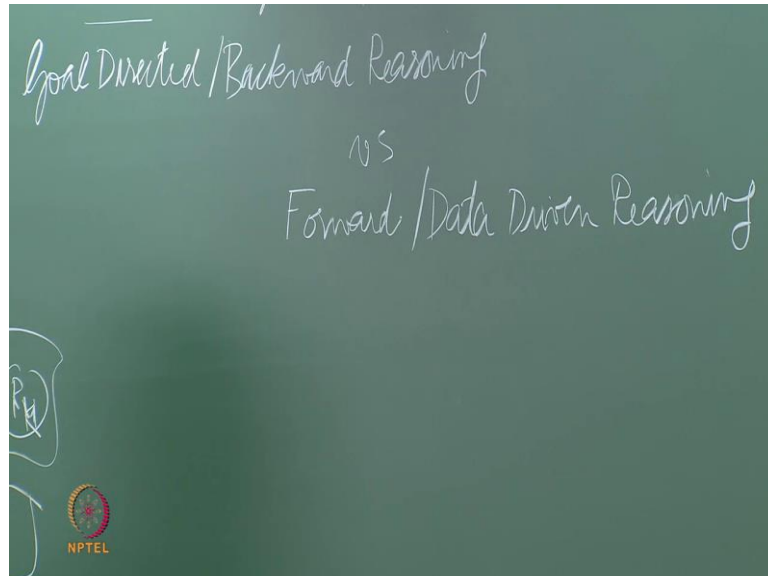 Goal Directed / Backward Reasoning
vs
Forward / Data Driven Reasoning
NPTEL